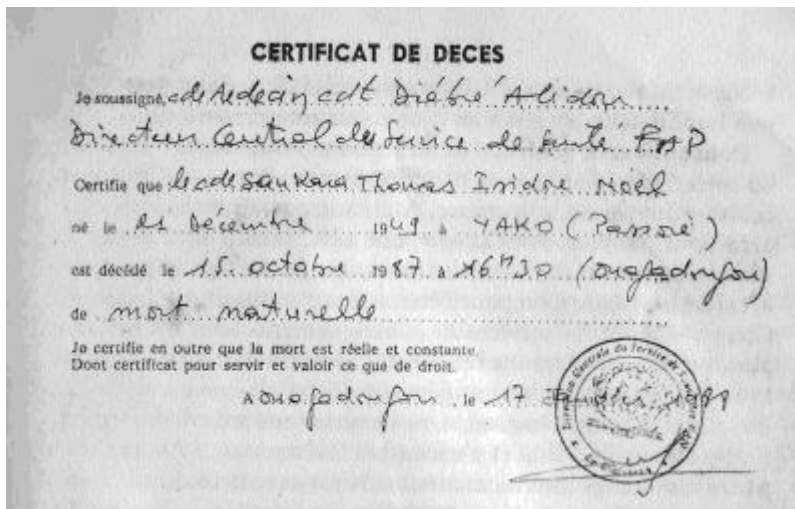 CERTIFICAT DE DECES
Je soussigné, Médecin cdt Diébré Alidou
Directeur Central du Service de Santé FAP
Certifie que le cdt Sankara Thomas Isidore Noël
né le 21 Décembre 1949 à YAKO (Passoré)
est décédé le 15 octobre 1987 à 16H30 (Ouagadougou)
de mort naturelle
Je certifie en outre que la mort est réelle et constante.
Dont certificat pour servir et valoir ce que de droit.
A Ouagadougou, le 17 Janvier 1988